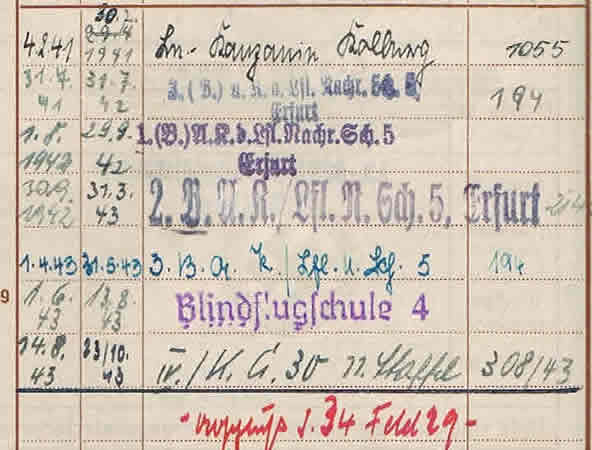 30.2.
4.2.41 29.4 1941 Ln.- Kompanie Kolberg 1055
31.7. 41 31.7. 42 3. (B.) A. K. d. Lfl. Nachr. Sch. 5, Erfurt 194
1.8. 1942 29.9. 42 1.(B.)A.K.d.Lfl.Nachr.Sch.5 Erfurt
30.9. 1942 31.3. 43 2. B. A. K./Lfl. N. Sch. 5, Erfurt
1.4.43 31.5.43 3. B. A. K./Lfl. N. Sch. 5 194
9 1.6. 43 13.8. 43 Blindflugschule 4
14.8. 43 23/10. 43 IV./K. G. 30 11. Staffel 308/43
S. 34 Feld 29 -